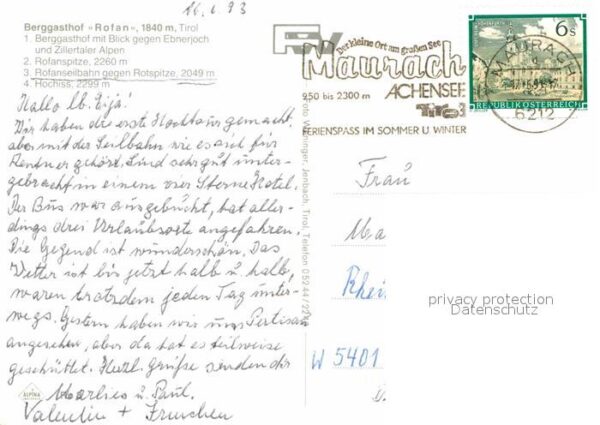 16.6.93
Berggasthof »Rofan«, 1840 m, Tirol
1. Berggasthof mit Blick gegen Ebnerjoch
und Zillertaler Alpen
2. Rofanspitze, 2260 m
3. Rofanseilbahn gegen Rotspitze, 2049 m
4. Hochiss, 2299 m
Hallo lb. Gija!
Wir haben die erste Hochtour gemacht
aber mit der Seilbahn wie es sich für
Rentner gehört. Sind sehr gut unter-
gebracht in einem vier Sterne Hotel.
Der Bus war ausgebucht, hat aller-
dings drei Urlaubsorte angefahren.
Die Gegend ist wunderschön. Das
Wetter ist bis jetzt halb u. halb,
waren trotzdem jeden Tag unter-
wegs. Gestern haben wir uns Pertisau
angesehen, aber da hat es teilweise
geschüttet. Herzl. Grüße senden dir
Marlies u. Paul.
Valentin +
ALPINA
Der kleine Ort am großen See
Maurach
ACHENSEE
950 bis 2300 m
Tirol
FERIENSPASS IM SOMMER U. WINTER
6 s
REPUBLIK ÖSTERREICH
MAURACH
6212
Jenbach, Tirol, Telefon 05244/22
Frau
Ma
Rhei
W 5401
privacy protection
Datenschutz